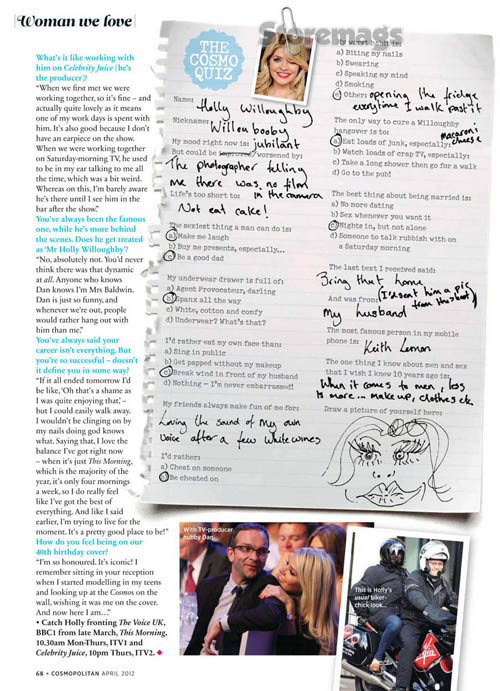 Woman we love
What's it like working with
him on Celebrity Juice [he's
the producer]?
"When we first met we were
working together, so it's fine – and
actually quite lovely as it means
one of my work days is spent with
him. It's also good because I don't
have an earpiece on the show.
When we were working together
on Saturday-morning TV, he used
to be in my ear talking to me all
the time, which was a bit weird.
Whereas on this, I'm barely aware
he's there until I see him in the
bar after the show."
You've always been the famous
one, while he's more behind
the scenes. Does he get treated
as 'Mr Holly Willoughby'?
"No, absolutely not. You'd never
think there was that dynamic
at all. Anyone who knows
Dan knows I'm Mrs Baldwin.
Dan is just so funny, and
whenever we're out, people
would rather hang out with
him than me."
You've always said your
career isn't everything. But
you're so successful – doesn't
it define you in some way?
"If it all ended tomorrow I'd
be like, 'Oh that's a shame as
I was quite enjoying that',–
but I could easily walk away.
I wouldn't be clinging on by
my nails doing god knows
what. Saying that, I love the
balance I've got right now
– when it's just This Morning,
which is the majority of the
year, it's only four mornings
a week, so I do really feel
like I've got the best of
everything. And like I said
earlier, I'm trying to live for the
moment. It's a pretty good place to be!"
How do you feel being on our
40th birthday cover?
"I'm so honoured. It's iconic! I
remember sitting in your reception
when I started modelling in my teens
and looking up at the Cosmos on the
wall, wishing it was me on the cover.
And now here I am…"
• Catch Holly fronting The Voice UK,
BBC1 from late March, This Morning,
10.30am Mon-Thurs, ITV1 and
Celebrity Juice, 10pm Thurs, ITV2.
THE
COSMO
QUIZ
Storemags
Name: Holly Willoughby
Nickname: Willoubooby
My mood right now is: jubilant
But could be improved/worsened by:
The photographer telling
me there was no film
in the camera
Life's too short to:
Not eat cake!
The sexiest thing a man can do is:
a) Make me laugh
b) Buy me presents, especially...
c) Be a good dad
My underwear drawer is full of:
a) Agent Provocateur, darling
b) Spanx all the way
c) White, cotton and comfy
d) Underwear? What's that?
I'd rather eat my own face than:
a) Sing in public
b) Get papped without my makeup
c) Break wind in front of my husband
d) Nothing – I'm never embarrassed!
My friends always make fun of me for:
Loving the sound of my own
voice after a few white wines
I'd rather:
a) Cheat on someone
b) Be cheated on
My worst habit is:
a) Biting my nails
b) Swearing
c) Speaking my mind
d) Smoking
e) Other: opening the fridge
everytime I walk past it
The only way to cure a Willoughby
hangover is to:
a) Eat loads of junk, especially: macaroni cheese
b) Watch loads of crap TV, especially:
c) Take a long shower then go for a walk
d) Go to the pub!
The best thing about being married is:
a) No more dating
b) Sex whenever you want it
c) Nights in, but not alone
d) Someone to talk rubbish with on
a Saturday morning
The last text I received said:
Bring that home
(I'd sent him a pic
from this shoot)
And was from:
My husband
The most famous person in my mobile
phone is: Keith Lemon
The one thing I know about men and sex
that I wish I knew 10 years ago is:
When it comes to men, less
is more... make up, clothes etc.
Draw a picture of yourself here:
With TV-producer
hubby Dan
This is Holly's
usual biker-
chick look...
68 • COSMOPOLITAN APRIL 2012